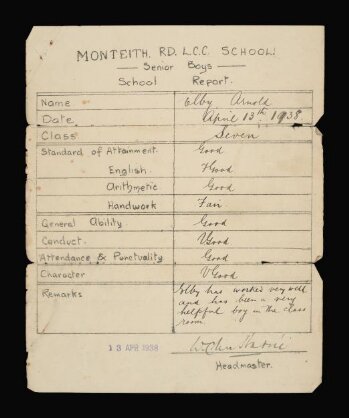 MONTEITH. RD. L.C.C. SCHOOL.
Senior Boys
School Report.
Name Elby Arnold
Date April 13th 1938
Class Seven
Standard of Attainment. Good
English. VGood
Arithmetic Good
Handwork Fair
General Ability Good
Conduct. VGood
Attendance & Punctuality Good
Character VGood
Remarks Elby has worked very well
and has been a very
helpful boy in the class
room.
13 APR 1938
Headmaster.